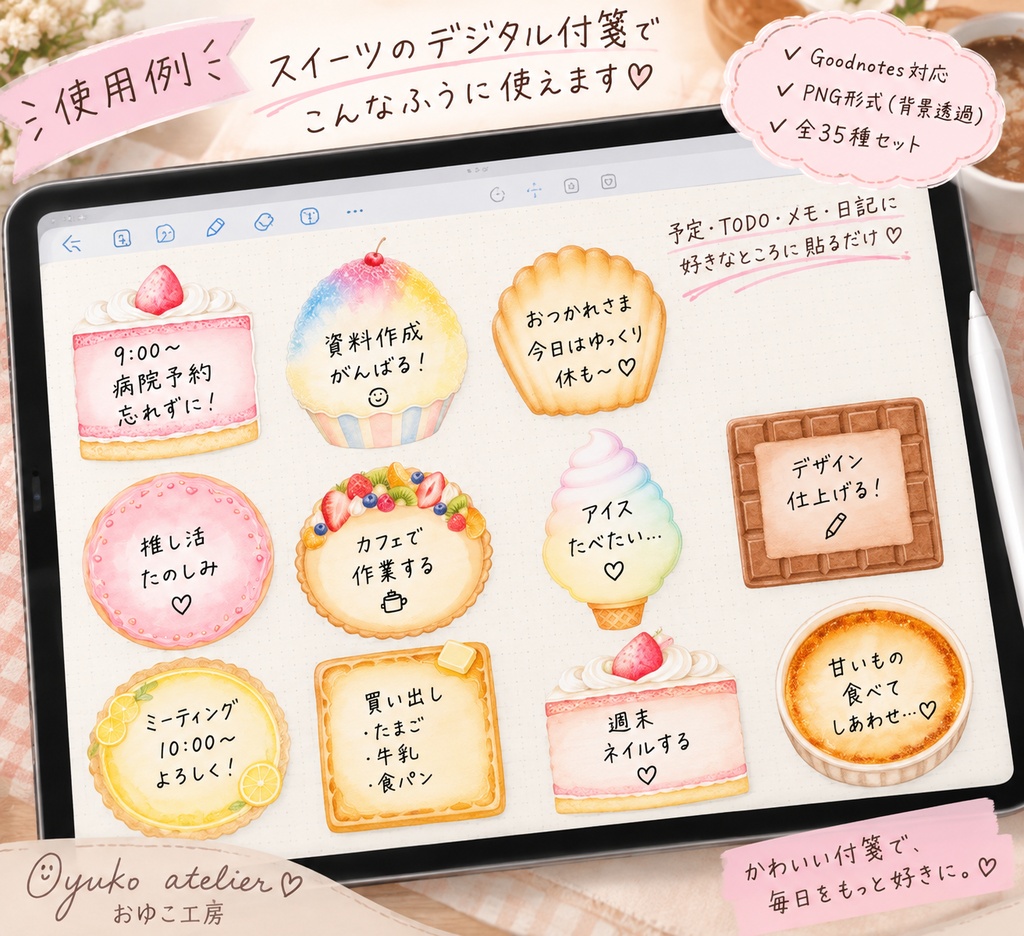 使用例
スイーツのデジタル付箋で
こんなふうに使えます♡
✓ Goodnotes対応
✓ PNG形式(背景透過)
✓ 全35種セット
予定・TODO・メモ・日記に
好きなところに貼るだけ♡
9:00〜
病院予約
忘れずに!
資料作成
がんばる!
おつかれさま
今日はゆっくり
休も〜♡
デザイン
仕上げる!
推し活
たのしみ
♡
カフェで
作業する
アイス
たべたい…
♡
ミーティング
10:00〜
よろしく!
買い出し
・たまご
・牛乳
・食パン
週末
ネイルする
♡
甘いもの
食べて
しあわせ…♡
Oyuko atelier♡
おゆこ工房
かわいい付箋で、
毎日をもっと好きに。♡